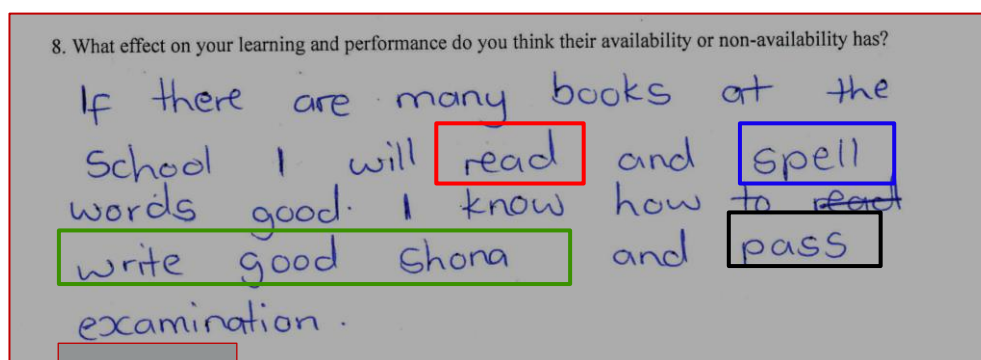 8. What effect on your learning and performance do you think their availability or non-availability has?
If there are many books at the
School I will read and spell
words good. I know how to read
write good Shona and pass
examination.